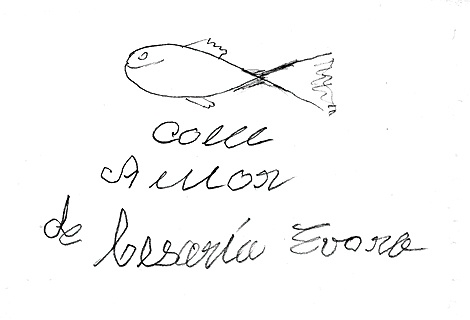 com
Amor
de Cesaria Evora